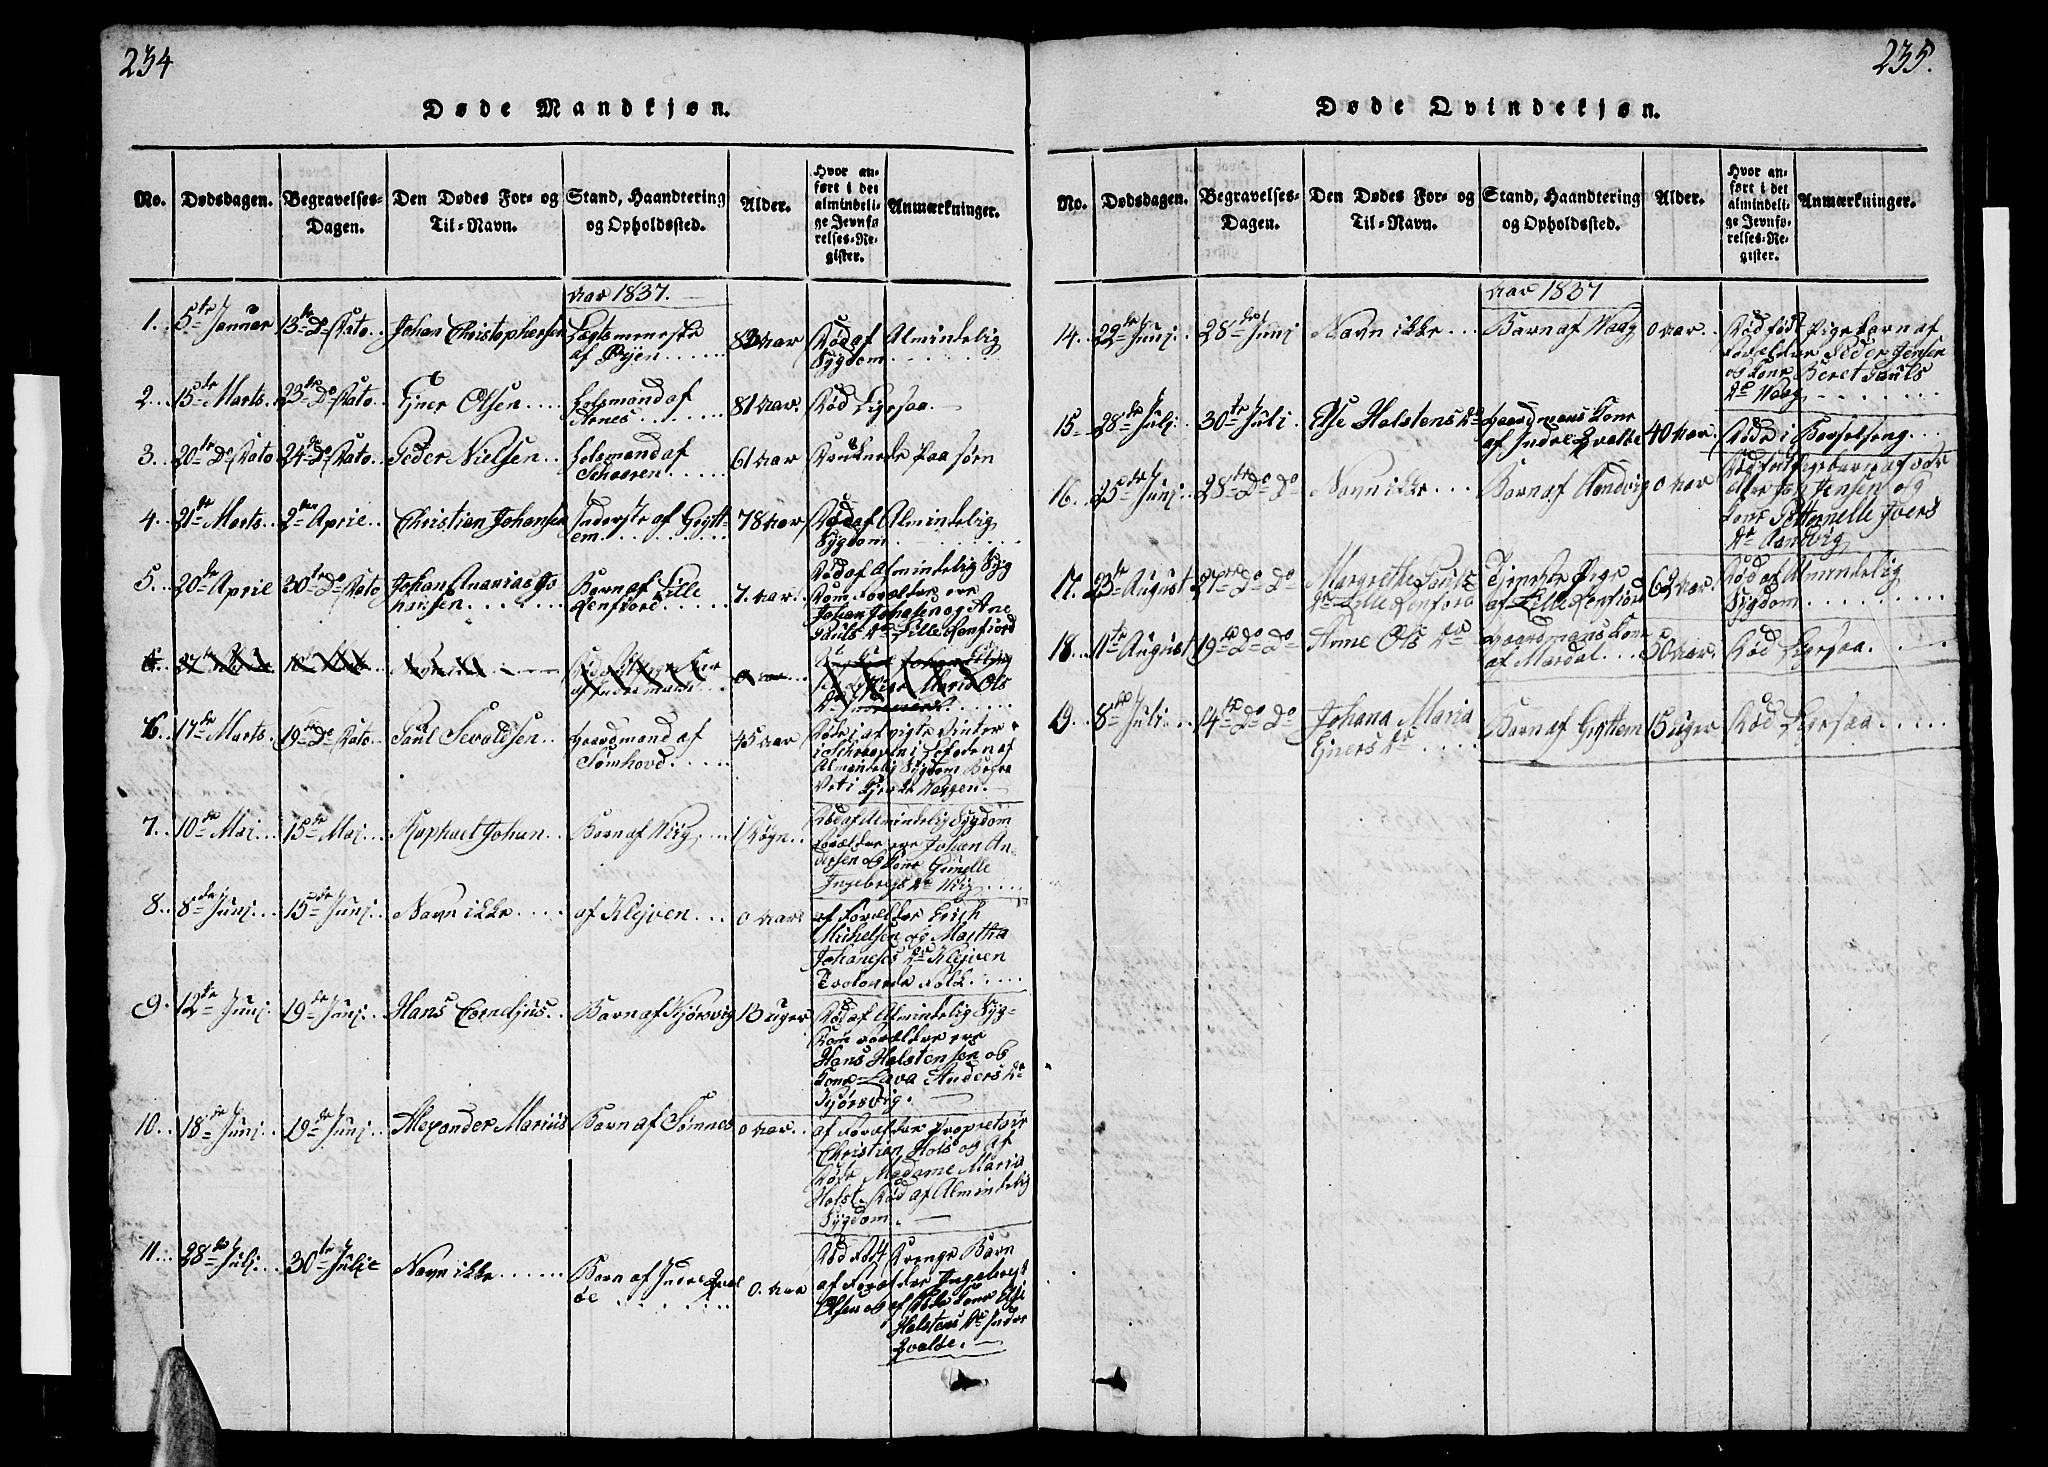 234
Døde Mandkjøn.
No. Dødsdagen. Begravelses-Dagen. Den Dødes For- og Til-Navn. Stand, Haandtering og Opholdssted. Alder. Hvor anført i det almindelige Jevnførelses-Register. Anmærkninger.
aar 1837.
1. 5te Januar 13de Do Dato. Johan Christophersen Lægtsmenneske af 82 aar Død af Almindelig
Sygdom
2. 15de Marts. 23de Do Dato. Ejner Olsen Losmand af 81 aar. Død Ligesaa.
3. 20te Do Dato 24de Do Dato. Peder Nielsen Losmand af 61 aar Druknede paa Søen
4. 21de Marts 2den April Christian Johansen Inderste af Gryttem 78 aar Død af Almindelig
Sygdom
5. 20de April 30te Do Dato Johan Ananias Johansen Barn af Lille Lenfiord 7. aar. Død af Almindelig Syg
dom Forældre ere
Johan Johansen og Ane
Pauls Dr Lille Lenfiord
6. 17de Marts. 19de Do Dato. Paul Sevaldsen Gaardmand af Sømhovd 45 aar Døde i afvigte Vinter
i Schraaven i Lofoden af
Almindelig Sygdom Begra
vet i
7. 10de Mai 15de Mai Raphael Johan Barn af Wiig 1 Døgn Død af Almindelig Sygdom
Forældre ere Johan An-
dersen og Kone Gunelle
Ingebregs Dr Wiig
8. 8de Junj 15de Junj Navn ikke af Klejven 0 aar af Forældre Erich
Michelsen og Martha
Johaneses Dr Klejven
Trolovede Folk
9. 12te Junj 19de Junj. Hans Cornelius Barn af Kjørsvig 13 uger Død af Almindelig Syg-
dom Forældre ere
Hans Halstensen og
Kone Lava Anders Dr
Kjørsvig.
10. 18de Junj 19de Junj Alexander Marius Barn af Sømnes 0 aar af Forældre Proprietair
Christian Hols og af
Døde Madame Maria
Holst. Død af Almindelig
Sygdom.
11. 28de Julj 30te Julie Navn ikke Barn af Indre Qvaløe 0. aar Død Født Drenge Barn
af Forældre Ingebregt
Olsen og af Døde Kone Else
Halstens Dr Indre
Qvaløe.
235.
Døde Qvindekjøn.
No. Dødsdagen. Begravelses-Dagen. Den Dødes For- og Til-Navn. Stand, Haandtering og Opholdssted. Alder. Hvor anført i det almindelige Jevnførelses-Register. Anmærkninger.
aar 1837
14. 22de Junj. 28de Junj Navn ikke Barn af Waag 0 aar Død født Pige barn af
Forældre Peder Jensen
og Kone Beret Pauls
Dr Waag
15. 28de Julj. 30te Juli Else Halstens Dr Gaardmans Kone af Indre Qvaløe 40 aar. Døde i Barselseng
16. 25de Junj 28de Do Do Navn ikke Barn af Hondvig 0 aar
Jensen og
Kone Ivers
Dr
17. 23de August 27de Do Do Margrethe Pauls Dr Lille Lenfiord Tjeneste Pige af Lille Lenfiord 62 aar. Død af Almindelig
Sygdom
18. 11te August 19de Do Do Anne Ols Dr Gaardmans Kone af Mardal 50 aar. Død Ligesaa
19. 8de Juli 14de Do Do Johana Maria Ejners Dr Barn af Gryttem 15 uger Død Ligesaa